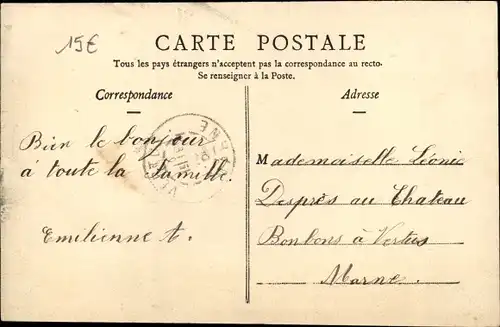 15€
CARTE POSTALE
Tous les pays étrangers n'acceptent pas la correspondance au recto.
Se renseigner à la Poste.
Correspondance
Adresse
Bien le bonjour
à toute la famille.
Emilienne A.
Mademoiselle Léonie
Desprès au Chateau
Bonbons à Vertus
Marne.